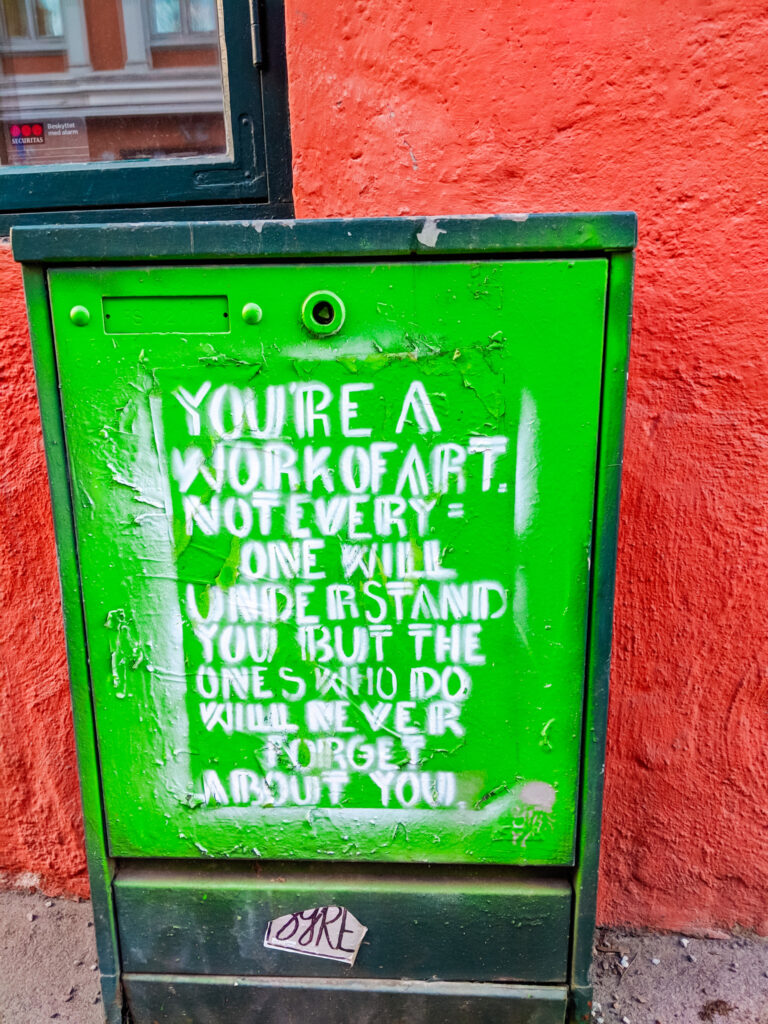 Beskyttet
med alarm
SECURITAS
YOU'RE A
WORK OF ART.
NOT EVERY=
ONE WILL
UNDERSTAND
YOU BUT THE
ONES WHO DO
WILL NEVER
FORGET
ABOUT YOU.